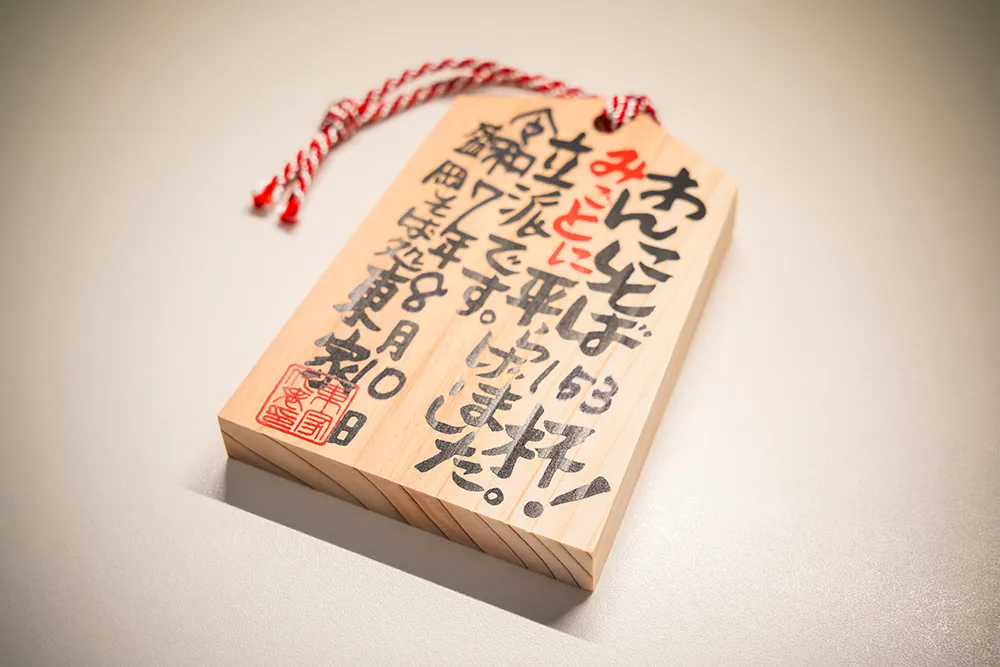 わんこそば153杯!
みごとに平らげました。
立派です。
令和7年8月10日
盛岡そば処東家